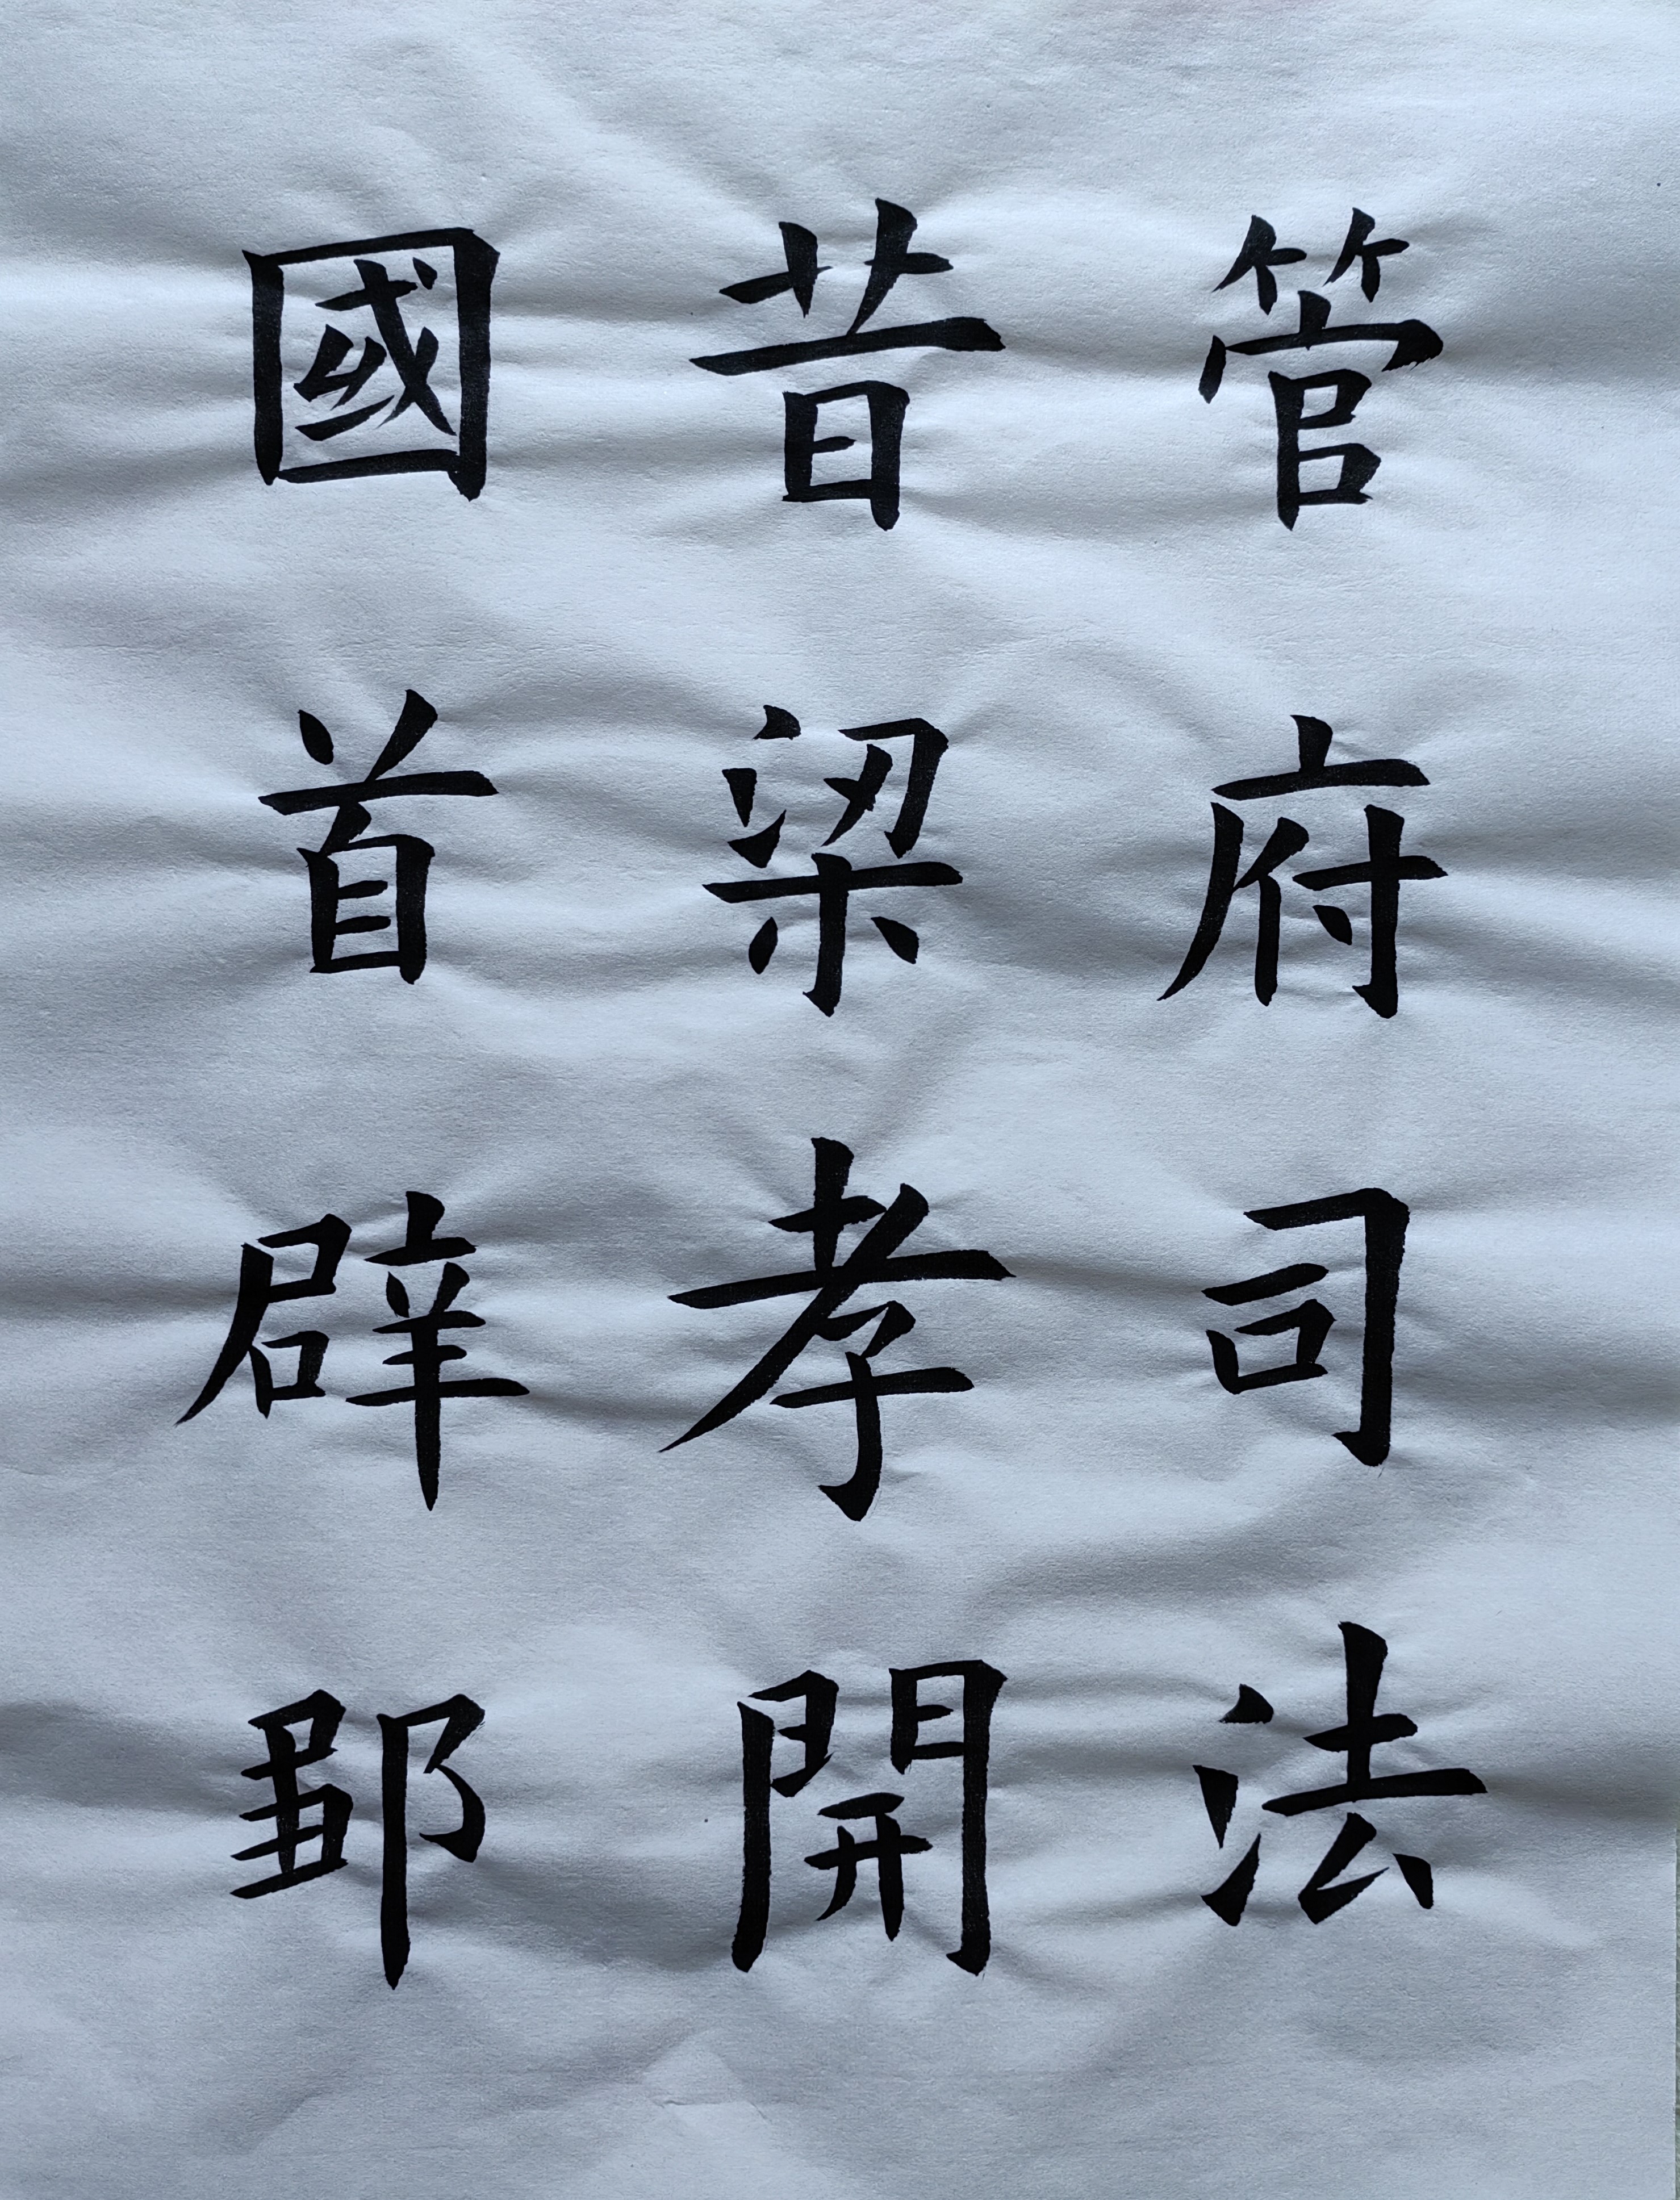 管府司法
昔梁孝開
國首辟鄒